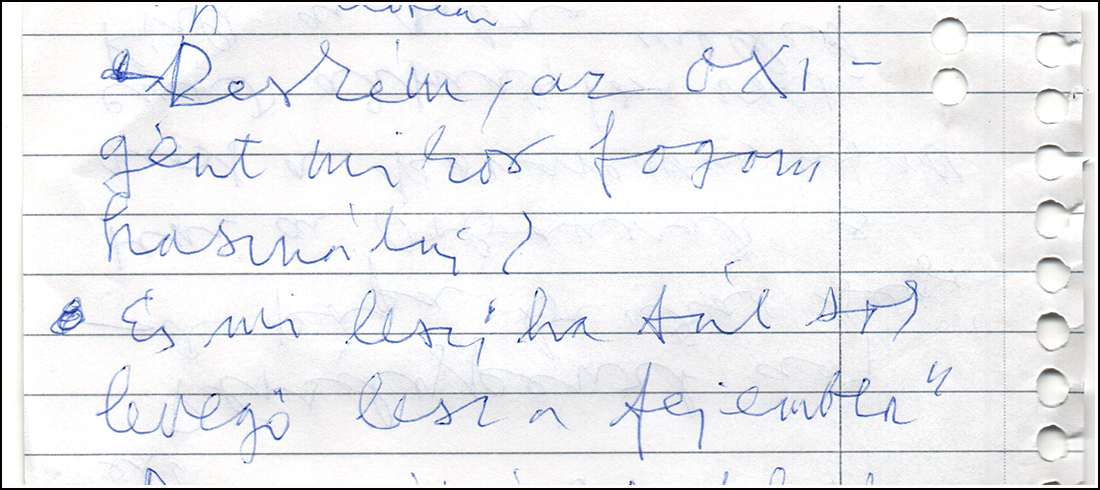 az OXI-
gént mikor fogom
használni?
• És mi lesz, ha túl sok
levegő lesz a fejemben"